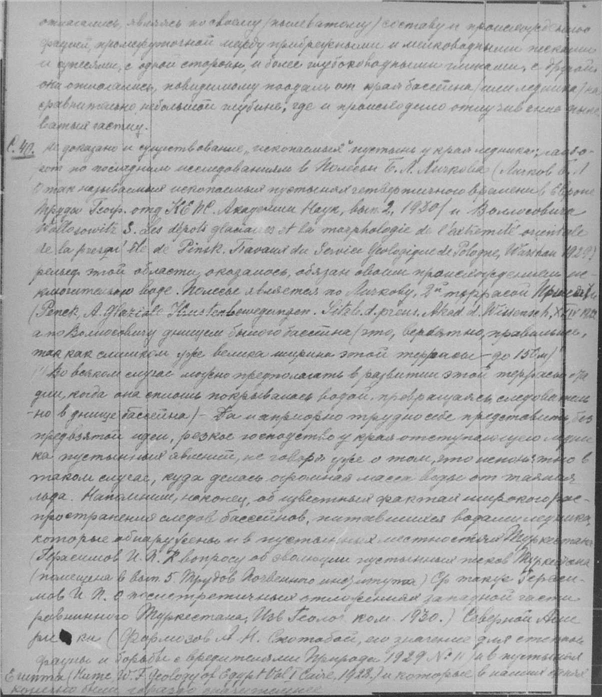 относились, являясь по своему (пылеватому) составу и происхождению
фацией, промежуточной между прибрежными и мелководными песками
и супесями, с одной стороны, и более глубоководными глинами, с другой
она отлагалась, повидимому поодаль от края бассейна (или ледника) на
сравнительно небольшой глубине, где и происходило отмучивание пыле
ватых частиц.
Не доказано и существование „ископаемых" пустынь у края ледника;
по последним исследованиям в Полесьи Б. Л. Личкова (Личков Б. Л
О так называемых ископаемых пустынях четвертичного времени в Европе
Труды Геогр. отд КЕПС Академии Наук, вып. 2, 1930) и Волосовича
S. Les dépôts glaciaires et la morphologie de l'extrémité orientale
de la de Pinsk. Travaux du Service Géologique de Pologne, Warshau 1929)
рельеф этой области, оказалось, обязан своим происхождением ис
ключительно воде. Полесье является по Личкову, 2ой террасой
(Penck, A. Sitzb. d. preus. Akad d. Wissensch,
а по Волосовичу днищем былого бассейна (это, вероятно, правильнее,
так как слишком уже велика ширина этой террасы – до 150 м)
(Во всяком случае можно предполагать в развитии этой террасы ста
дии, когда она сплошь покрывалась водой, превращаясь, следователь
но в днище бассейна) – Да и априорно трудно себе представить, без
предвзятой идеи, резкое господство у края отступающего ледни
ка пустынных явлений, не говоря уже о том, что непонятно в
таком случае, куда делась огромная масса воды от таяния
льда. Напомним, наконец, об известных фактах широкого рас
пространения следов бассейнов, питавшихся водами ледника,
которые обнаружены и в пустынных местностях Туркестана
(Герасимов И. П. К вопросу об эволюции пустынных песков Туркестана
(помещена в вып 5 Трудов Почвенного института) Ср также Гераси
мов И. П. О отложениях западной части
равнинного Туркестана, Изв Геолог ком. 1930.) Северной Аме
рики (Формозов А. Н. его значение для степной
фауны и борьбы с вредителями Природа 1929 № 11) и в пустынях
Египта (Hume W. F. Geology of Egypt Vol 1 Cairo, 1925) и которые в наших